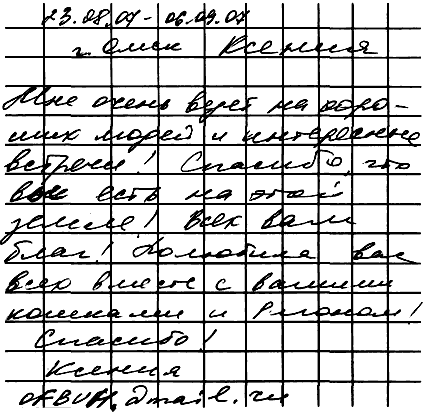 23.08.07 - 06.09.07
г. Омск Ксения
Мне очень везет на хоро-
ших людей и интересные
встречи! Спасибо, что
вы есть на этой
земле! Всех вам
благ! Полюбила вас
всею вместе с вашими
кошками и Рионом!
Спасибо!
Ксения